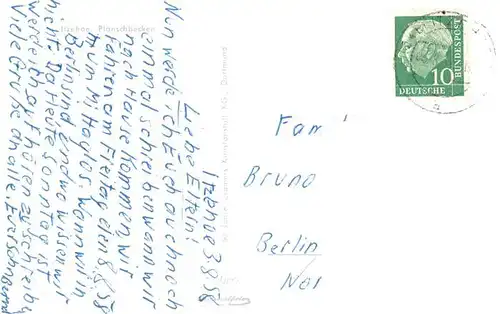 Itzehoe, Planschbecken
Itzehoe 3.8.58
Liebe Eltern!
Nun werde ich Euch auch noch
einmal schreiben wann wir
nach Hause kommen, wir
fahren am Freitag den 8.8.58
zum Mittag los. Wann wir in
Berlin sind und wo wissen wir
nicht. Da Heute Sonntag ist
werde ich aufhören zu schreiben
Viele Grüße an alle, Euer Sohn Bernd
Dortmund
10
DEUTSCHE
BUNDESPOST
Fam
Bruno
Berlin